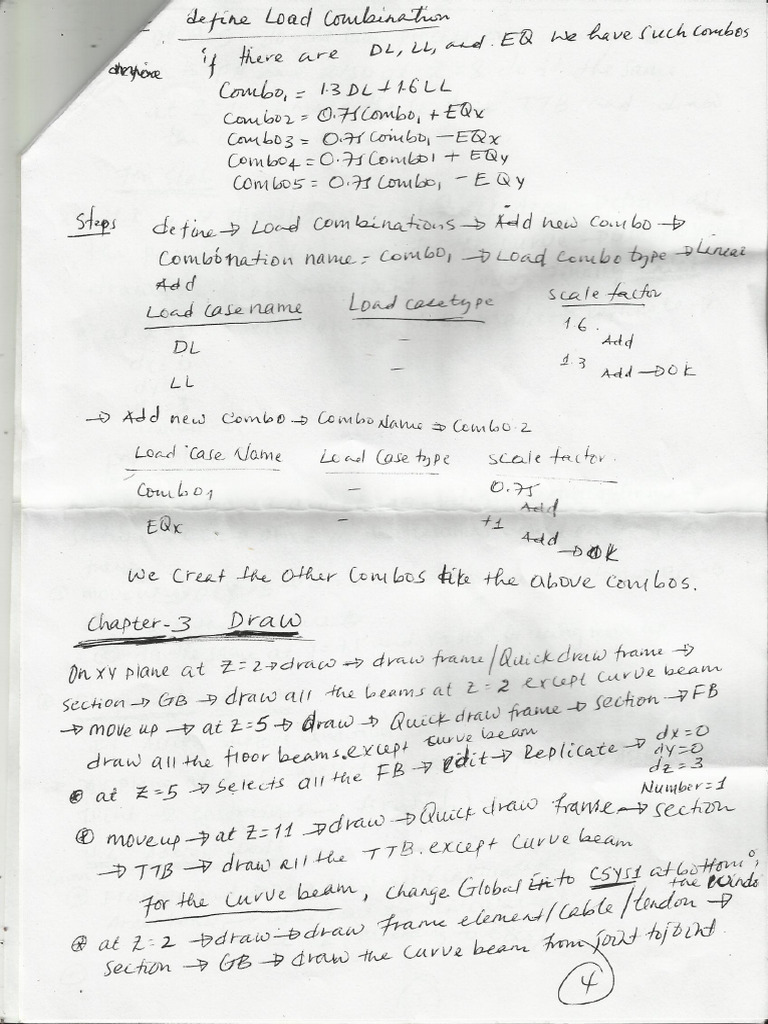 define Load Combination
if there are DL, LL, and EQ we have such combos
Combo1 = 1.3 DL + 1.6 LL
Combo2 = 0.75 Combo1 + EQx
Combo3 = 0.75 Combo1 - EQx
Combo4 = 0.75 Combo1 + EQy
Combo5 = 0.75 Combo1 - EQy
Steps define → Load Combinations → Add new Combo →
Combónation name = Combo1 → Load Combo type → Linear
Add
Load Case name Load Case type scale factor
1.6
DL - Add
1.3
LL - Add → OK
→ Add new Combo → Combo Name → Combo 2
Load Case Name Load Case type scale factor
Combo1 - 0.75
Add
EQx - +1
Add
→ OK
We Creat the other Combos like the above Combos.
Chapter-3 Draw
On xy plane at Z=2 → draw → draw frame/Quick draw frame →
section → GB → draw all the beams at Z=2 except curve beam
→ move up → at Z=5 → draw → Quick draw frame → section → FB
draw all the floor beams except curve beam
⊛ at Z=5 → Selects all the FB → edit → Replicate → dx=0
dy=0
dz=3
Number=1
⊛ move up → at Z=11 → draw → Quick draw frame → section
→ TTB → draw all the TTB. except curve beam
For the curve beam, change Global to CSYS1 at bottom of
the windo
⊛ at Z=2 → draw → draw frame element/Cable/tendon →
section → GB → draw the curve beam from joint to joint.
4